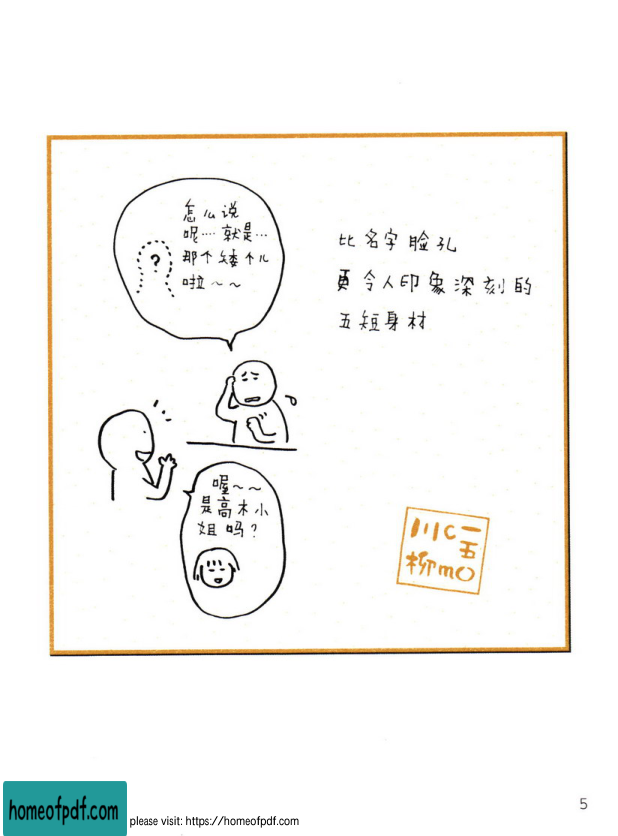 怎么说
呢…就是…
那个矮个儿
啦～～
?
比名字脸孔
更令人印象深刻的
五短身材
喔～～
是高木小
姐吗?
川柳
150cm
5
homeofpdf.com
please visit: https://homeofpdf.com